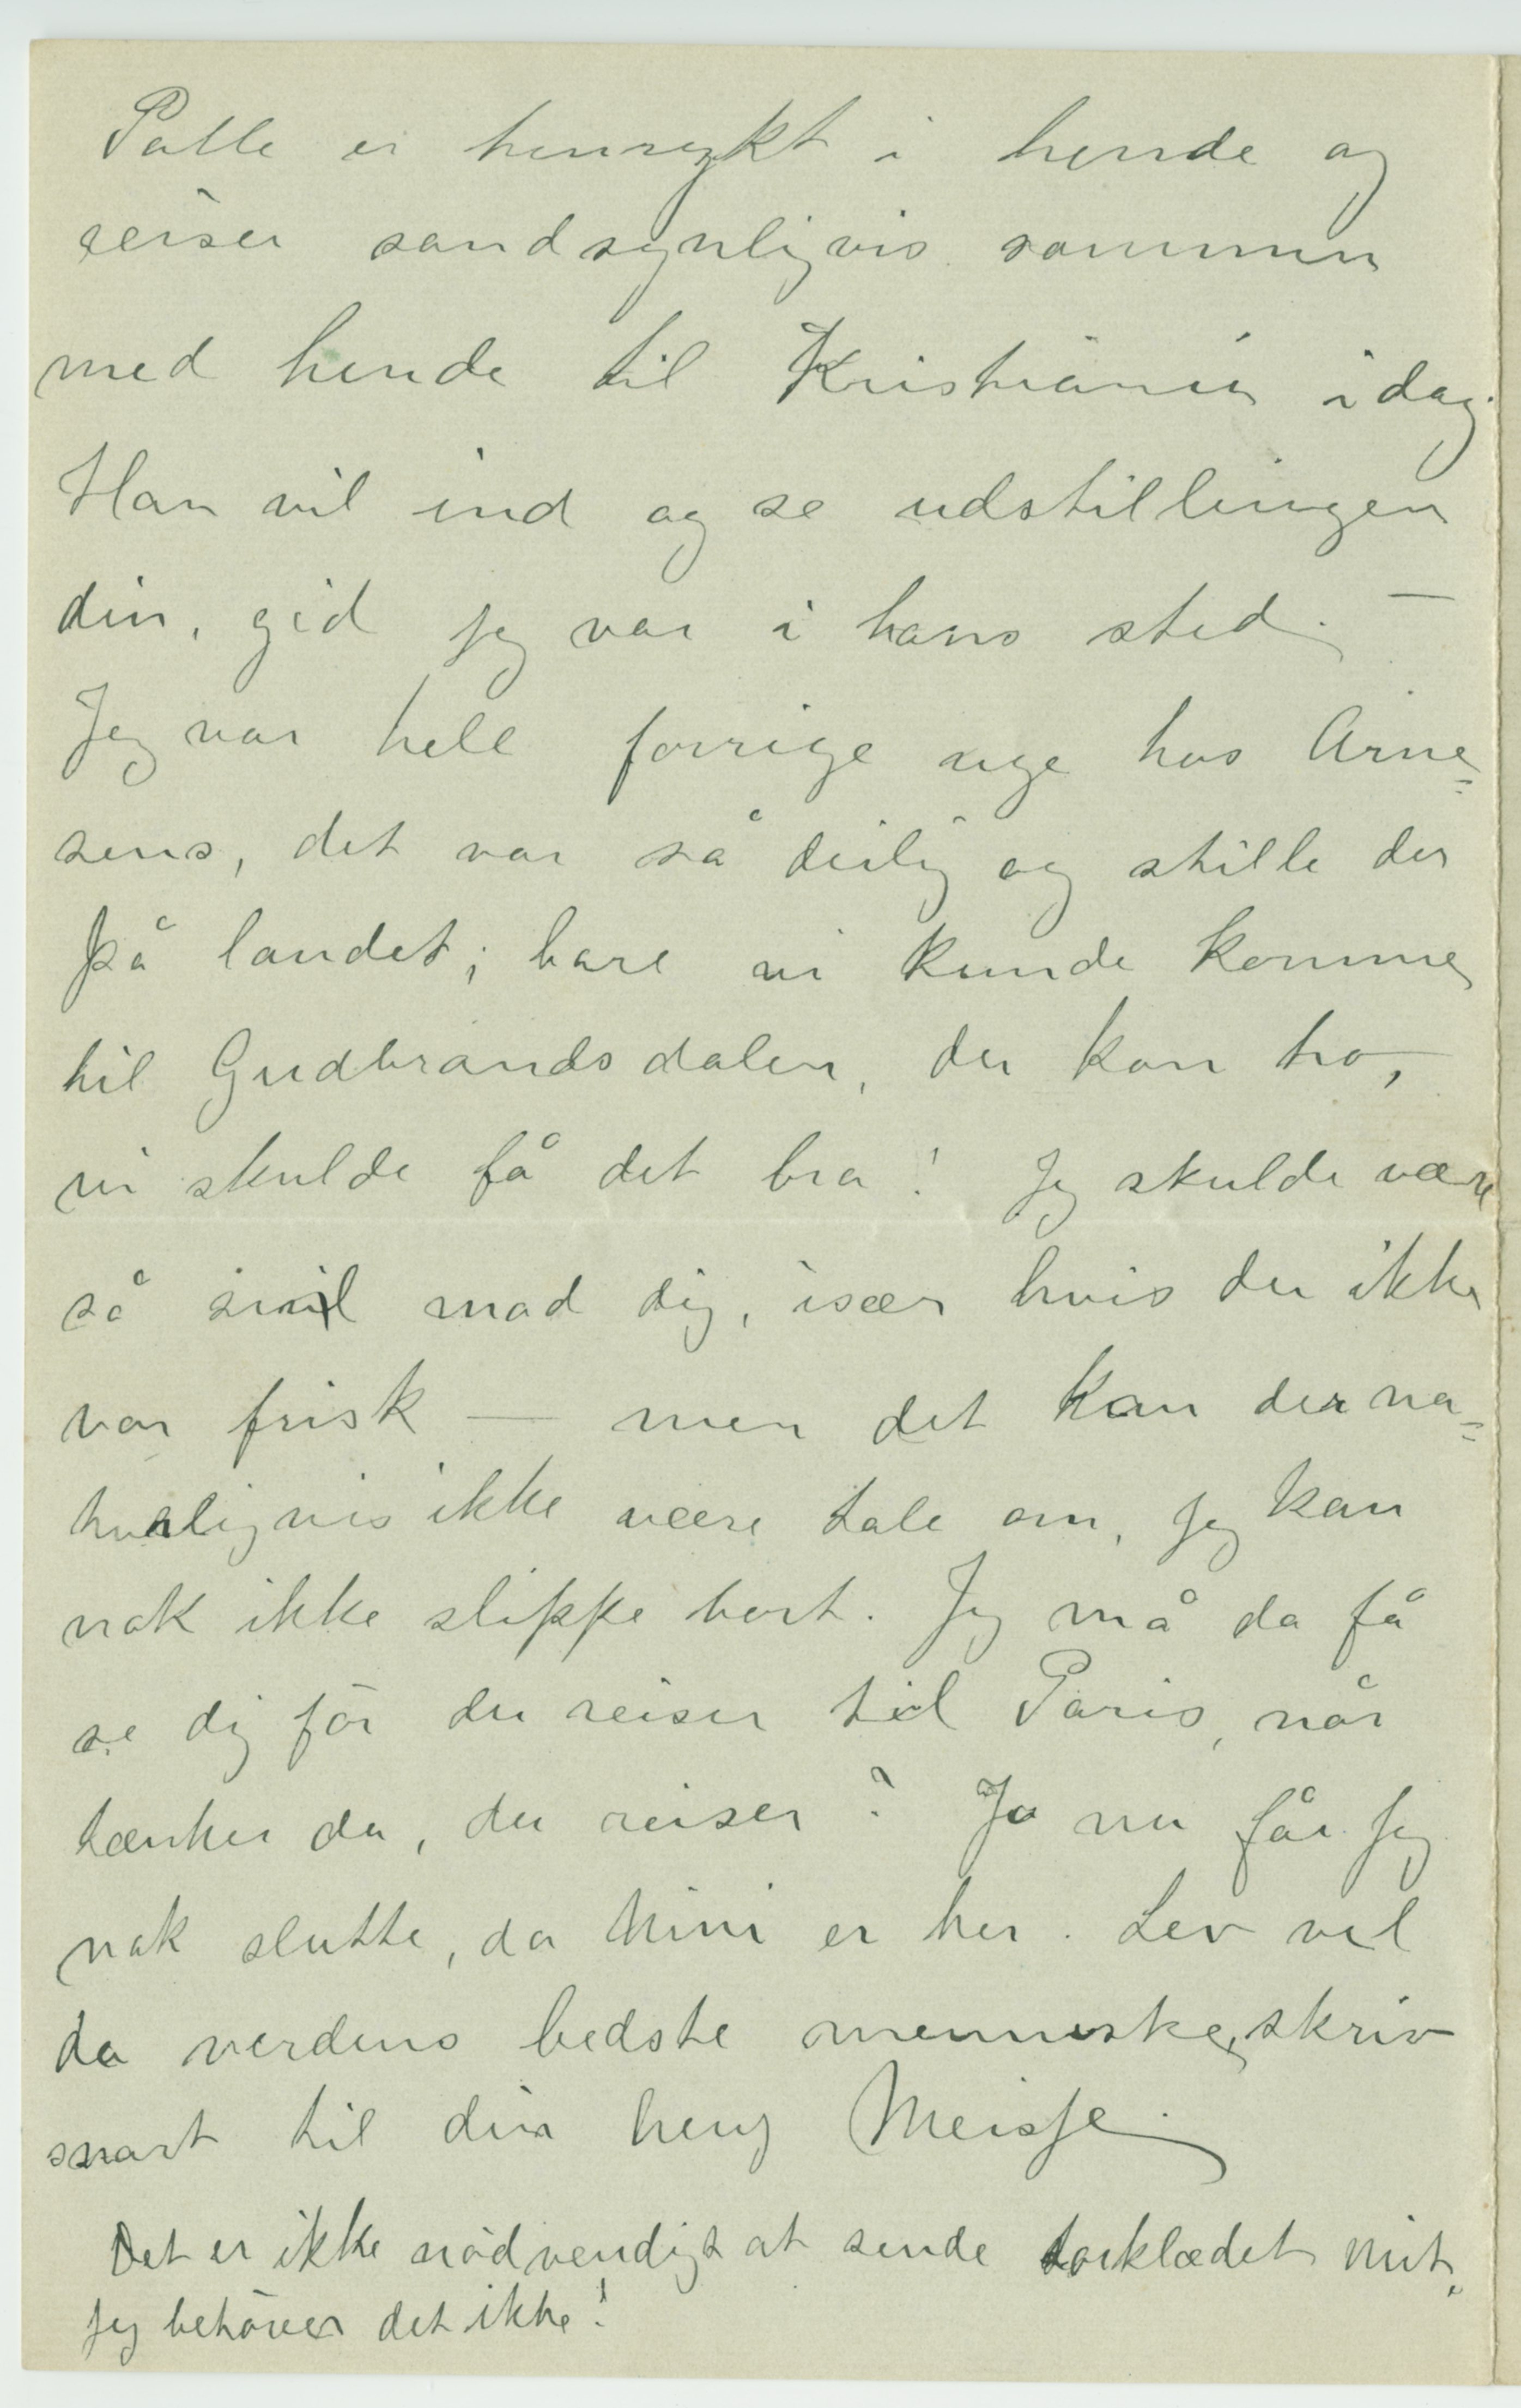 Palle er henrykt i hende og
reiser sandsynligvis sammen
med hende til Kristiania idag.
Han vil ind og se udstillingen
din, gid jeg var i hans sted. —
Jeg var hele forrige uge hos Arne=
sens, det var så deilig og stille der
på landet; bare vi kunde komme
til Gudbrandsdalen, du kan tro,
vi skulde få det bra! Jeg skulde være
så snil mod dig, især hvis du ikke
var frisk — men det kan der na=
turligvis ikke være tale om, jeg kan
nok ikke slippe bort. Jeg må da få
se dig før du reiser til Paris, når
tænker du, du reiser? Ja nu får jeg
nok slutte, da Mimi er her. Lev vel
du verdens bedste menneske, skriv
snart til din heng Meisse.
Det er ikke nødvendigt at sende tørklædet mit,
jeg behøver det ikke!